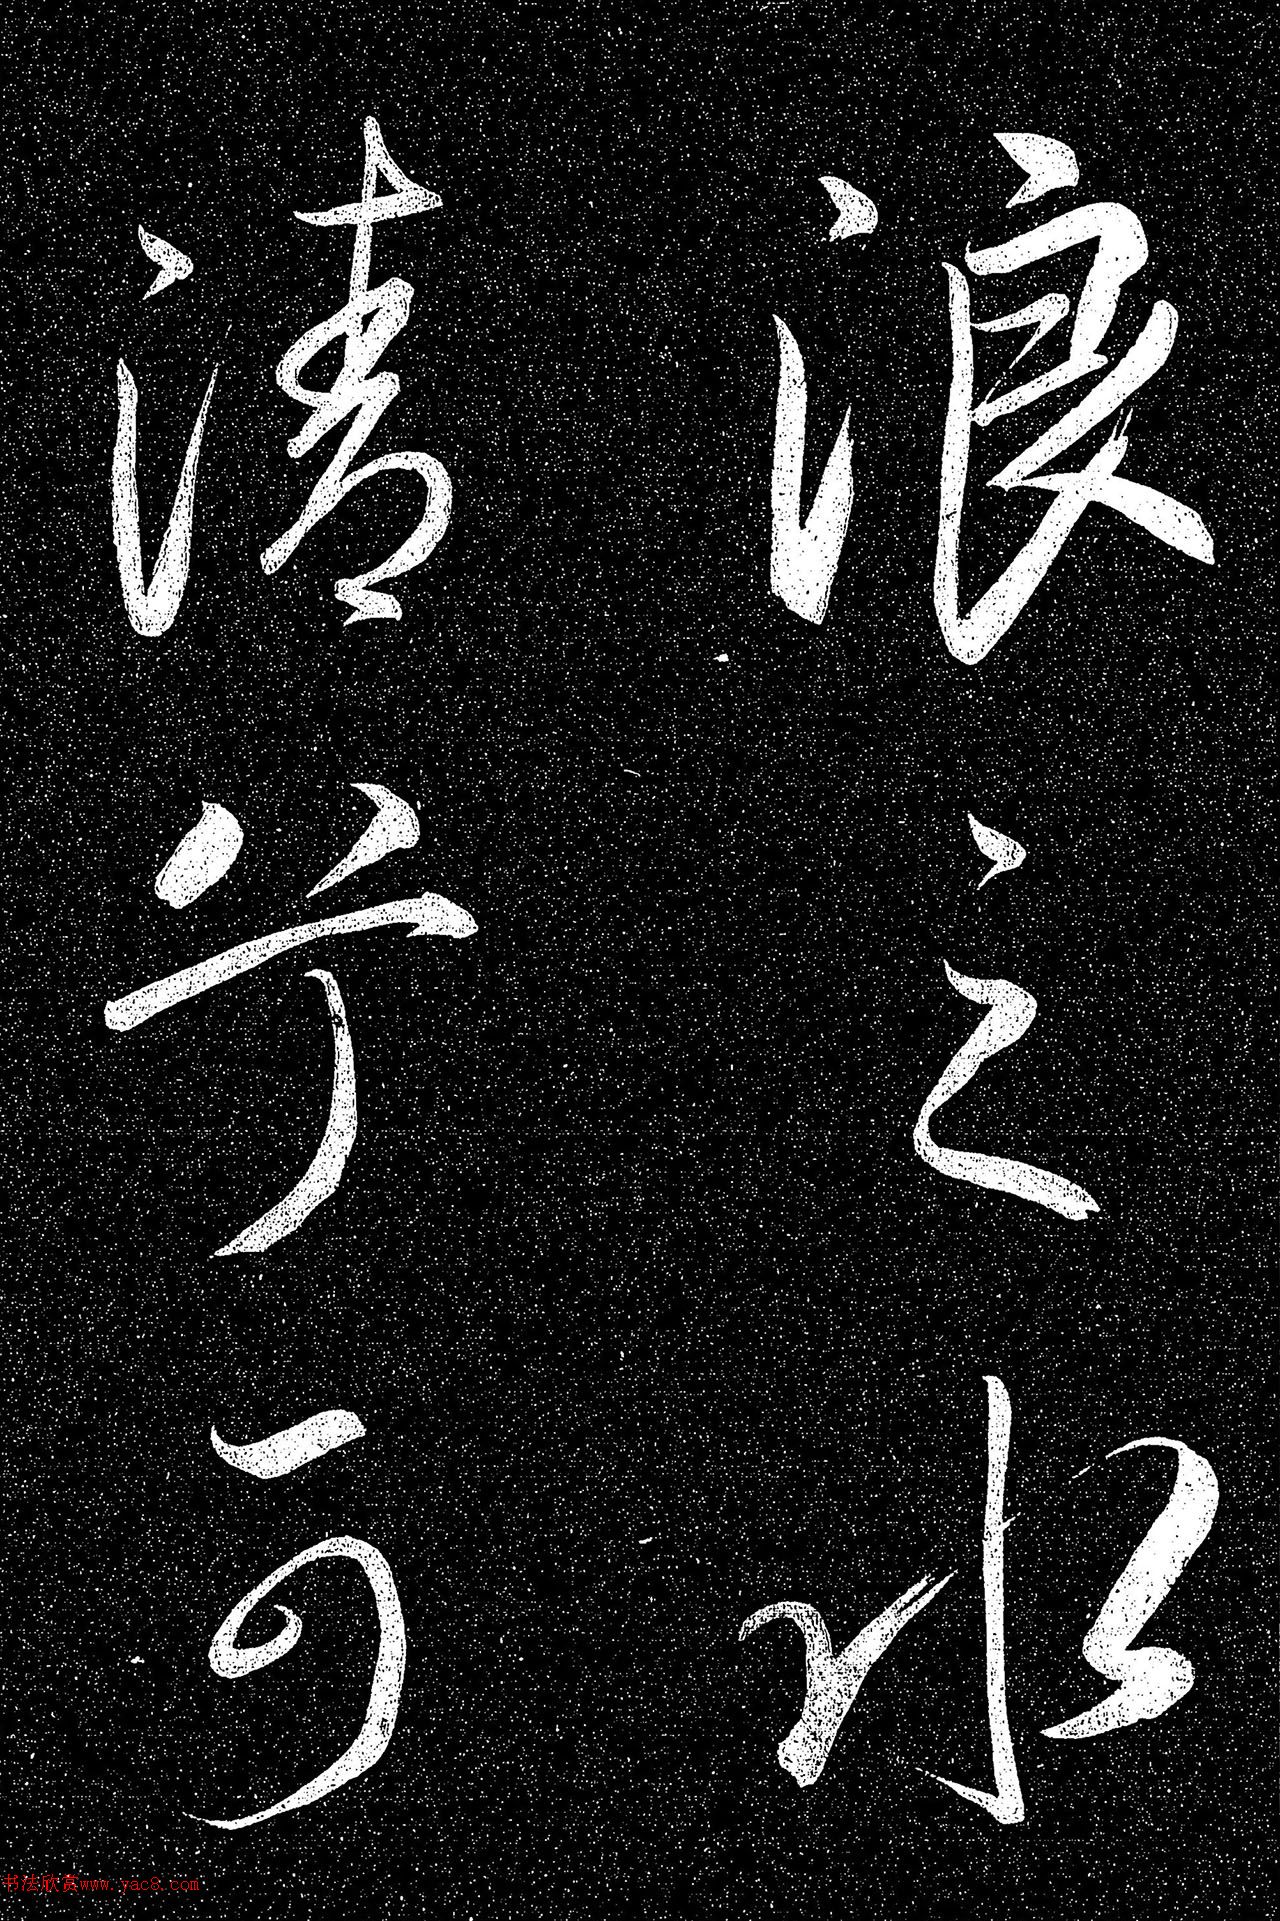 浪之水
清兮可
书法欣赏www.yac8.com